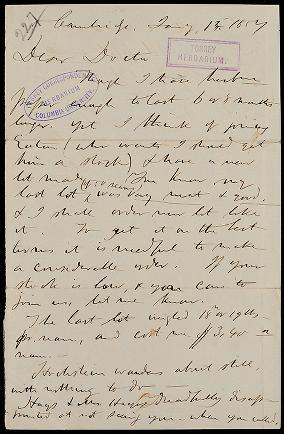 227
Cambridge, Jany 14. 1857
TORREY
HERBARIUM.
Dear Doctor
TORREY CORRESPONDENCE
HERBARIUM
COLUMBIA UNIVERSITY
Though I have herbm
paper enough to last 6 or 8 months
longer, yet I think of joining
Eaton (who wants I should get
him a stock) & have a new
lot made. You know my
last lot (of 50 reams) was very neat & good.
& I shall order new lot like
it. To get it on the best
terms it is needful to make
a considerable order. If your
stock is low, & you care to
join us, let me know.
The last lot weighed 18 or 19 lbs
pr. ream, and cost me $3,40 a
ream.—
wanders about still,
with nothing to do—
Hays & Mrs Hays dreadfully disap-
pointed at not seeing you when you called.